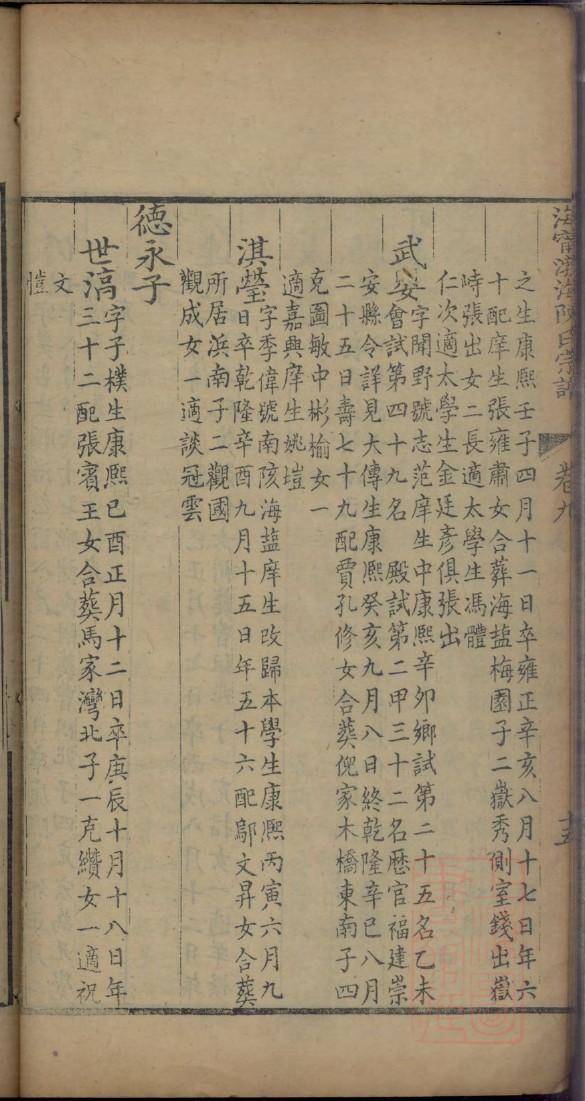 海寧渤海陳氏宗譜
卷九
十五
之生康熙壬子四月十一日卒雍正辛亥八月十七日年六
十配庠生張雍肅女合葬海盐梅園子二嶽秀側室錢出嶽
峙張出女二長適太學生馮體
仁次適太學生金廷彥俱張出
武安字聞野號志范庠生中康熙辛卯鄉試第二十五名乙未
會試第四十九名 殿試第二甲三十二名歷官福建崇
安縣令詳見大傳生康熙癸亥九月八日終乾隆辛巳八月
二十五日壽七十九配賈孔修女合葬倪家木橋東南子四
克圖敏中彬榆女一
適嘉興庠生姚塏
淇瑩字季偉號南陔海盐庠生改歸本學生康熙丙寅六月九
日卒乾隆辛酉九月十五日年五十六配鄔文昇女合葬
所居浜南子二觀國
觀成女一適談冠雲
德永子
世滈字子樸生康熙己酉正月十二日卒庚辰十月十八日年
三十二配張賓王女合葬馬家灣北子一克纘女一適祝
文
愷